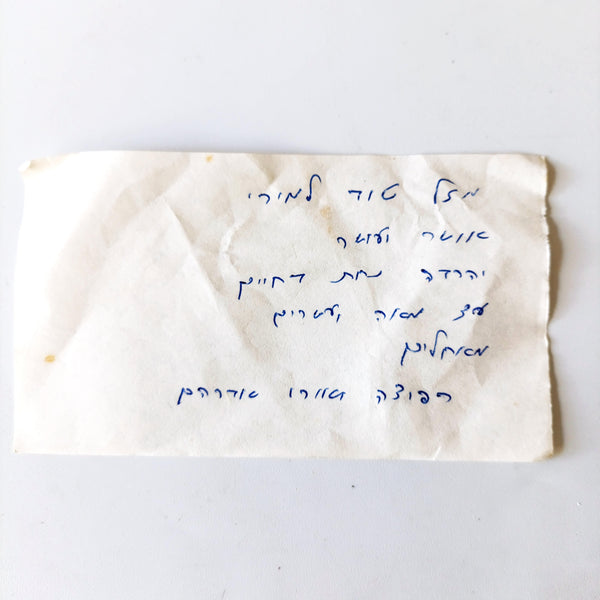 מזל טוב למירי
אושר ועושר
יהרבה נחת בחיים
עד מאה ועשרים
מאחלים
חפוצה ושורו אברהם